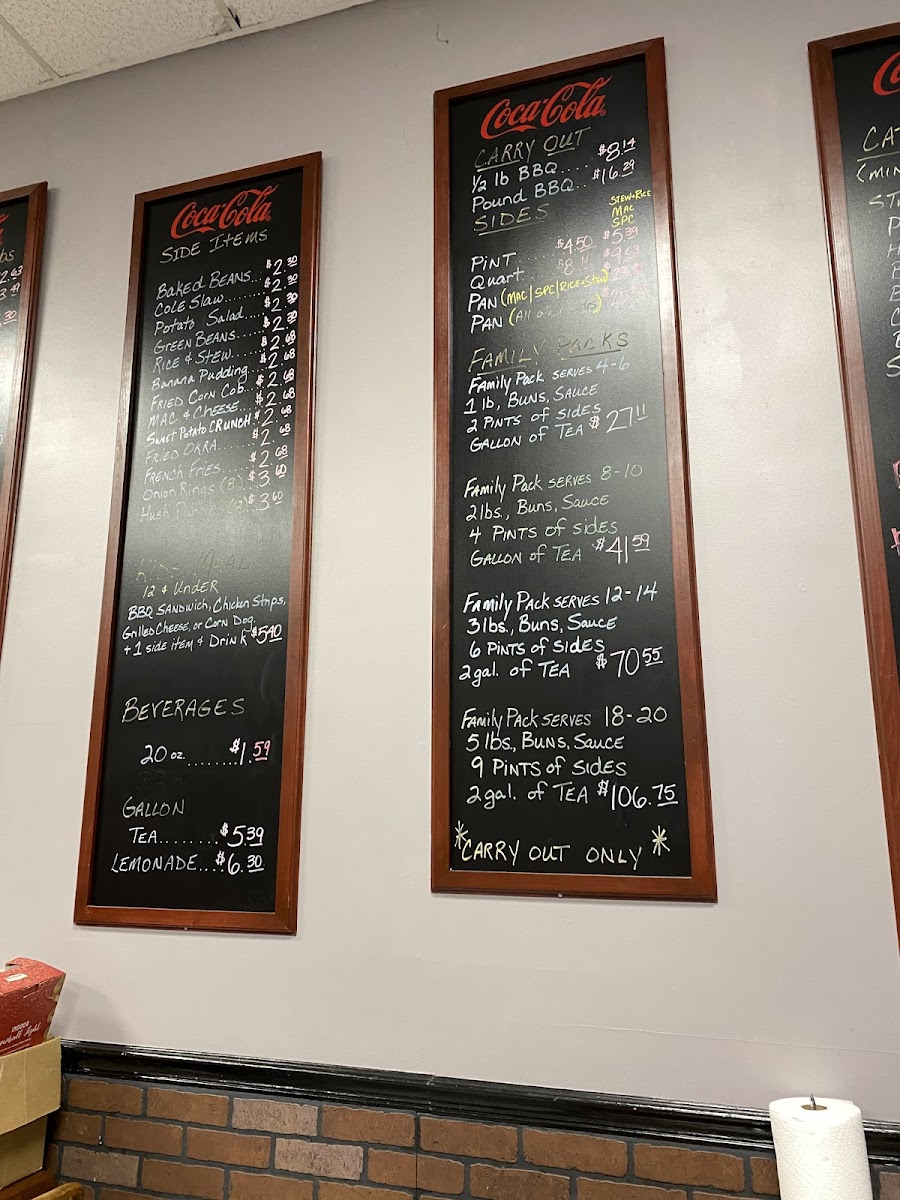 bs
Coca-Cola
SIDE ITEMS
BAKED BEANS... $2.30
COLE SLAW....... $2.30
POTATO SALAD.... $2.30
GREEN BEANS..... $2.30
RICE & STEW...... $2.68
Banana Pudding.. $2.68
FRIED CORN COB.. $2.68
MAC & CHEESE... $2.68
Sweet Potato CRUNCH $2.68
FRIED OKRA...... $2.68
FRENCH FRIES..... $2.68
ONION RINGS (8).. $3.60
Hush $3.60
KIDS MEAL
12 & UNDER
BBQ SANDWICH, Chicken Strips,
Grilled Cheese, or Corn Dog.
+ 1 side item & Drink $5.40
BEVERAGES
20 oz. ....... $1.59
GALLON
TEA........ $5.39
LEMONADE.... $6.30
Coca-Cola
CARRY OUT
1/2 lb BBQ.... $8.14
Pound BBQ.. $16.29
SIDES
STEW+RICE
MAC
SPC
PINT....... $4.50 $5.39
Quart..... $8.11 $9.03
PAN (MAC|SPC|RICE+Stew)
PAN (All
FAMILY PACKS
Family Pack SERVES 4-6
1 lb, Buns, SAUCE
2 PINTS of sides
GALLON of TEA $27.11
Family Pack SERVES 8-10
2 lbs., Buns, Sauce
4 PINTS of sides
GALLON of TEA $41.59
Family Pack SERVES 12-14
3 lbs., Buns, SAUCE
6 PINTS of sides
2 gal. of TEA $70.55
Family Pack SERVES 18-20
5 lbs., Buns, Sauce
9 PINTS of Sides
2 gal. of TEA $106.75
*CARRY OUT ONLY*